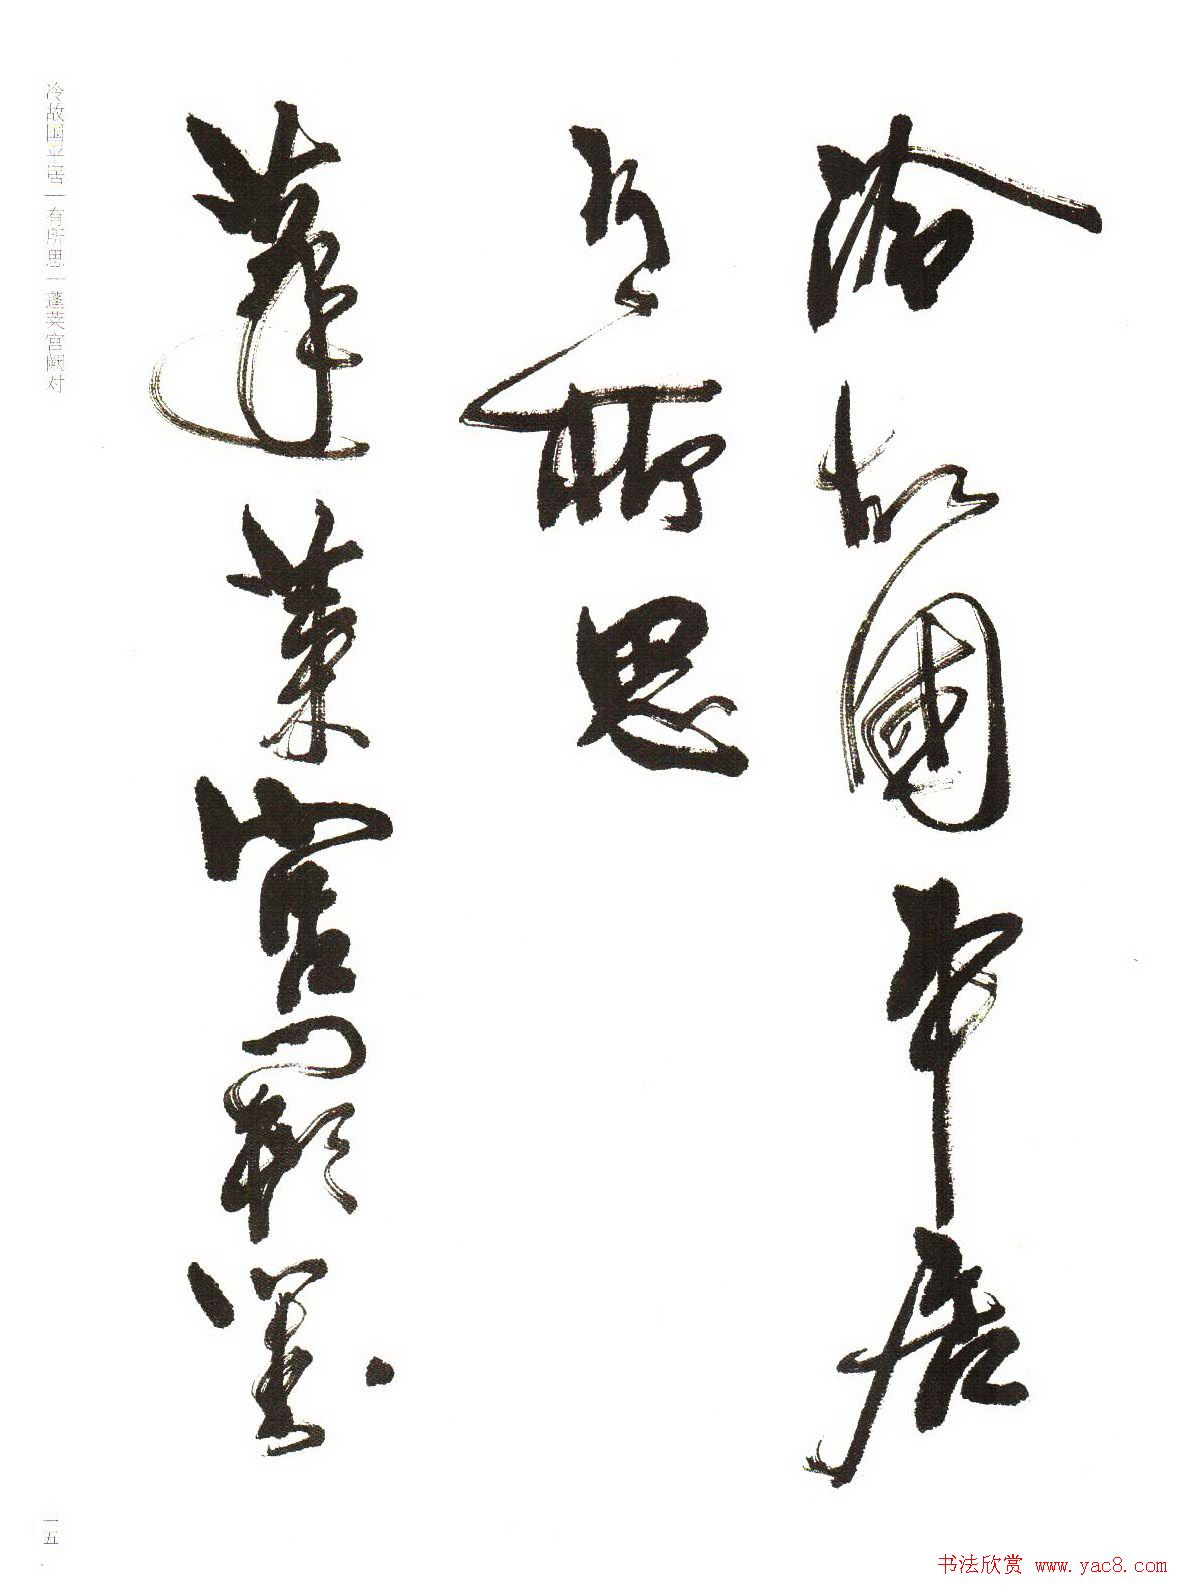 冷故國平居
有所思
蓬萊宮闕對
冷故国平居｜有所思｜蓬莱宫阙对
一五
书法欣赏 www.yac8.com